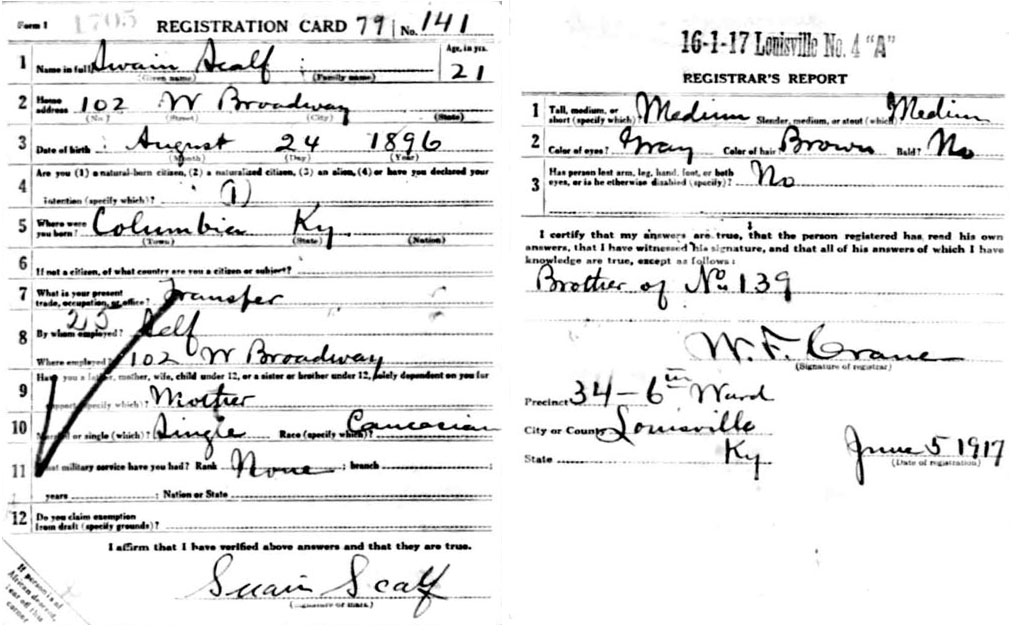 Form 1 1705 REGISTRATION CARD 79 No. 141
1 Name in full Swain Scalf Age, in yrs. 21
(Given name) (Family name)
2 Home address 102 W Broadway
(No.) (Street) (City) (State)
3 Date of birth August 24 1896
(Month) (Day) (Year)
Are you (1) a natural-born citizen, (2) a naturalized citizen, (3) an alien, (4) or have you declared your
4 intention (specify which)? (1)
5 Where were you born? Columbia Ky.
(Town) (State) (Nation)
6 If not a citizen, of what country are you a citizen or subject?
7 What is your present trade, occupation, or office? Transfer
25
8 By whom employed? Self
Where employed? 102 W Broadway
9 Have you a father, mother, wife, child under 12, or a sister or brother under 12, solely dependent on you for
support (specify which)? Mother
10 Married or single (which)? Single Race (specify which)? Caucasian
11 What military service have you had? Rank None ; branch ;
years ; Nation or State
12 Do you claim exemption from draft (specify grounds)?
I affirm that I have verified above answers and that they are true.
Swain Scalf
(Signature or mark)
If person is of
African descent,
tear off this
corner
16-1-17 Louisville No. 4 "A"
REGISTRAR'S REPORT
1 Tall, medium, or short (specify which)? Medium Slender, medium, or stout (which)? Medium
2 Color of eyes? Gray Color of hair? Brown Bald? No
3 Has person lost arm, leg, hand, foot, or both eyes, or is he otherwise disabled (specify)? No
I certify that my answers are true, that the person registered has read his own
answers, that I have witnessed his signature, and that all of his answers of which I have
knowledge are true, except as follows:
Brother of No. 139
W. F. Crane
(Signature of registrar)
Precinct 34 – 6th Ward
City or County Louisville
State Ky June 5 1917
(Date of registration)